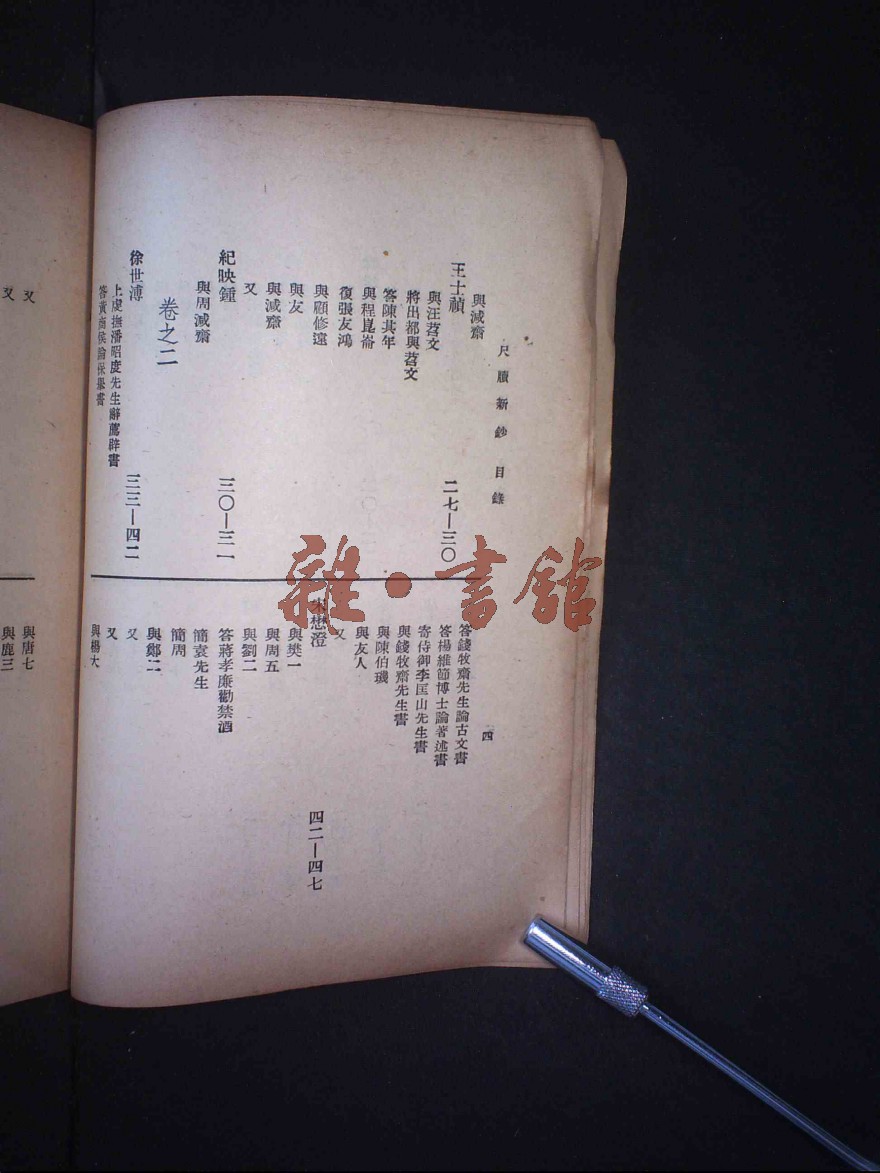 尺牘新鈔 目錄
四
與減齋
王士禎 二七—三〇
與汪苕文
將出都與苕文
答陳其年
與程崑崙
復張友鴻
與顧修遠
與友
與減齋
又
紀映鍾 三〇—三一
與周減齋
卷之二
徐世溥 三三—四二
上虔撫潘昭度先生辭薦辟書
答黃商侯論保舉書
答錢牧齋先生論古文書
答楊維節博士論著述書
寄侍御李匡山先生書
與錢牧齋先生書
與陳伯璣
與友人
又
宋懋澄 四二—四七
與樊一
與周五
與劉二
答蔣孝廉勸禁酒
簡袁先生
簡周
與鄭二
又
又
與楊大
又
又
與唐七
與鹿三
雜·書館